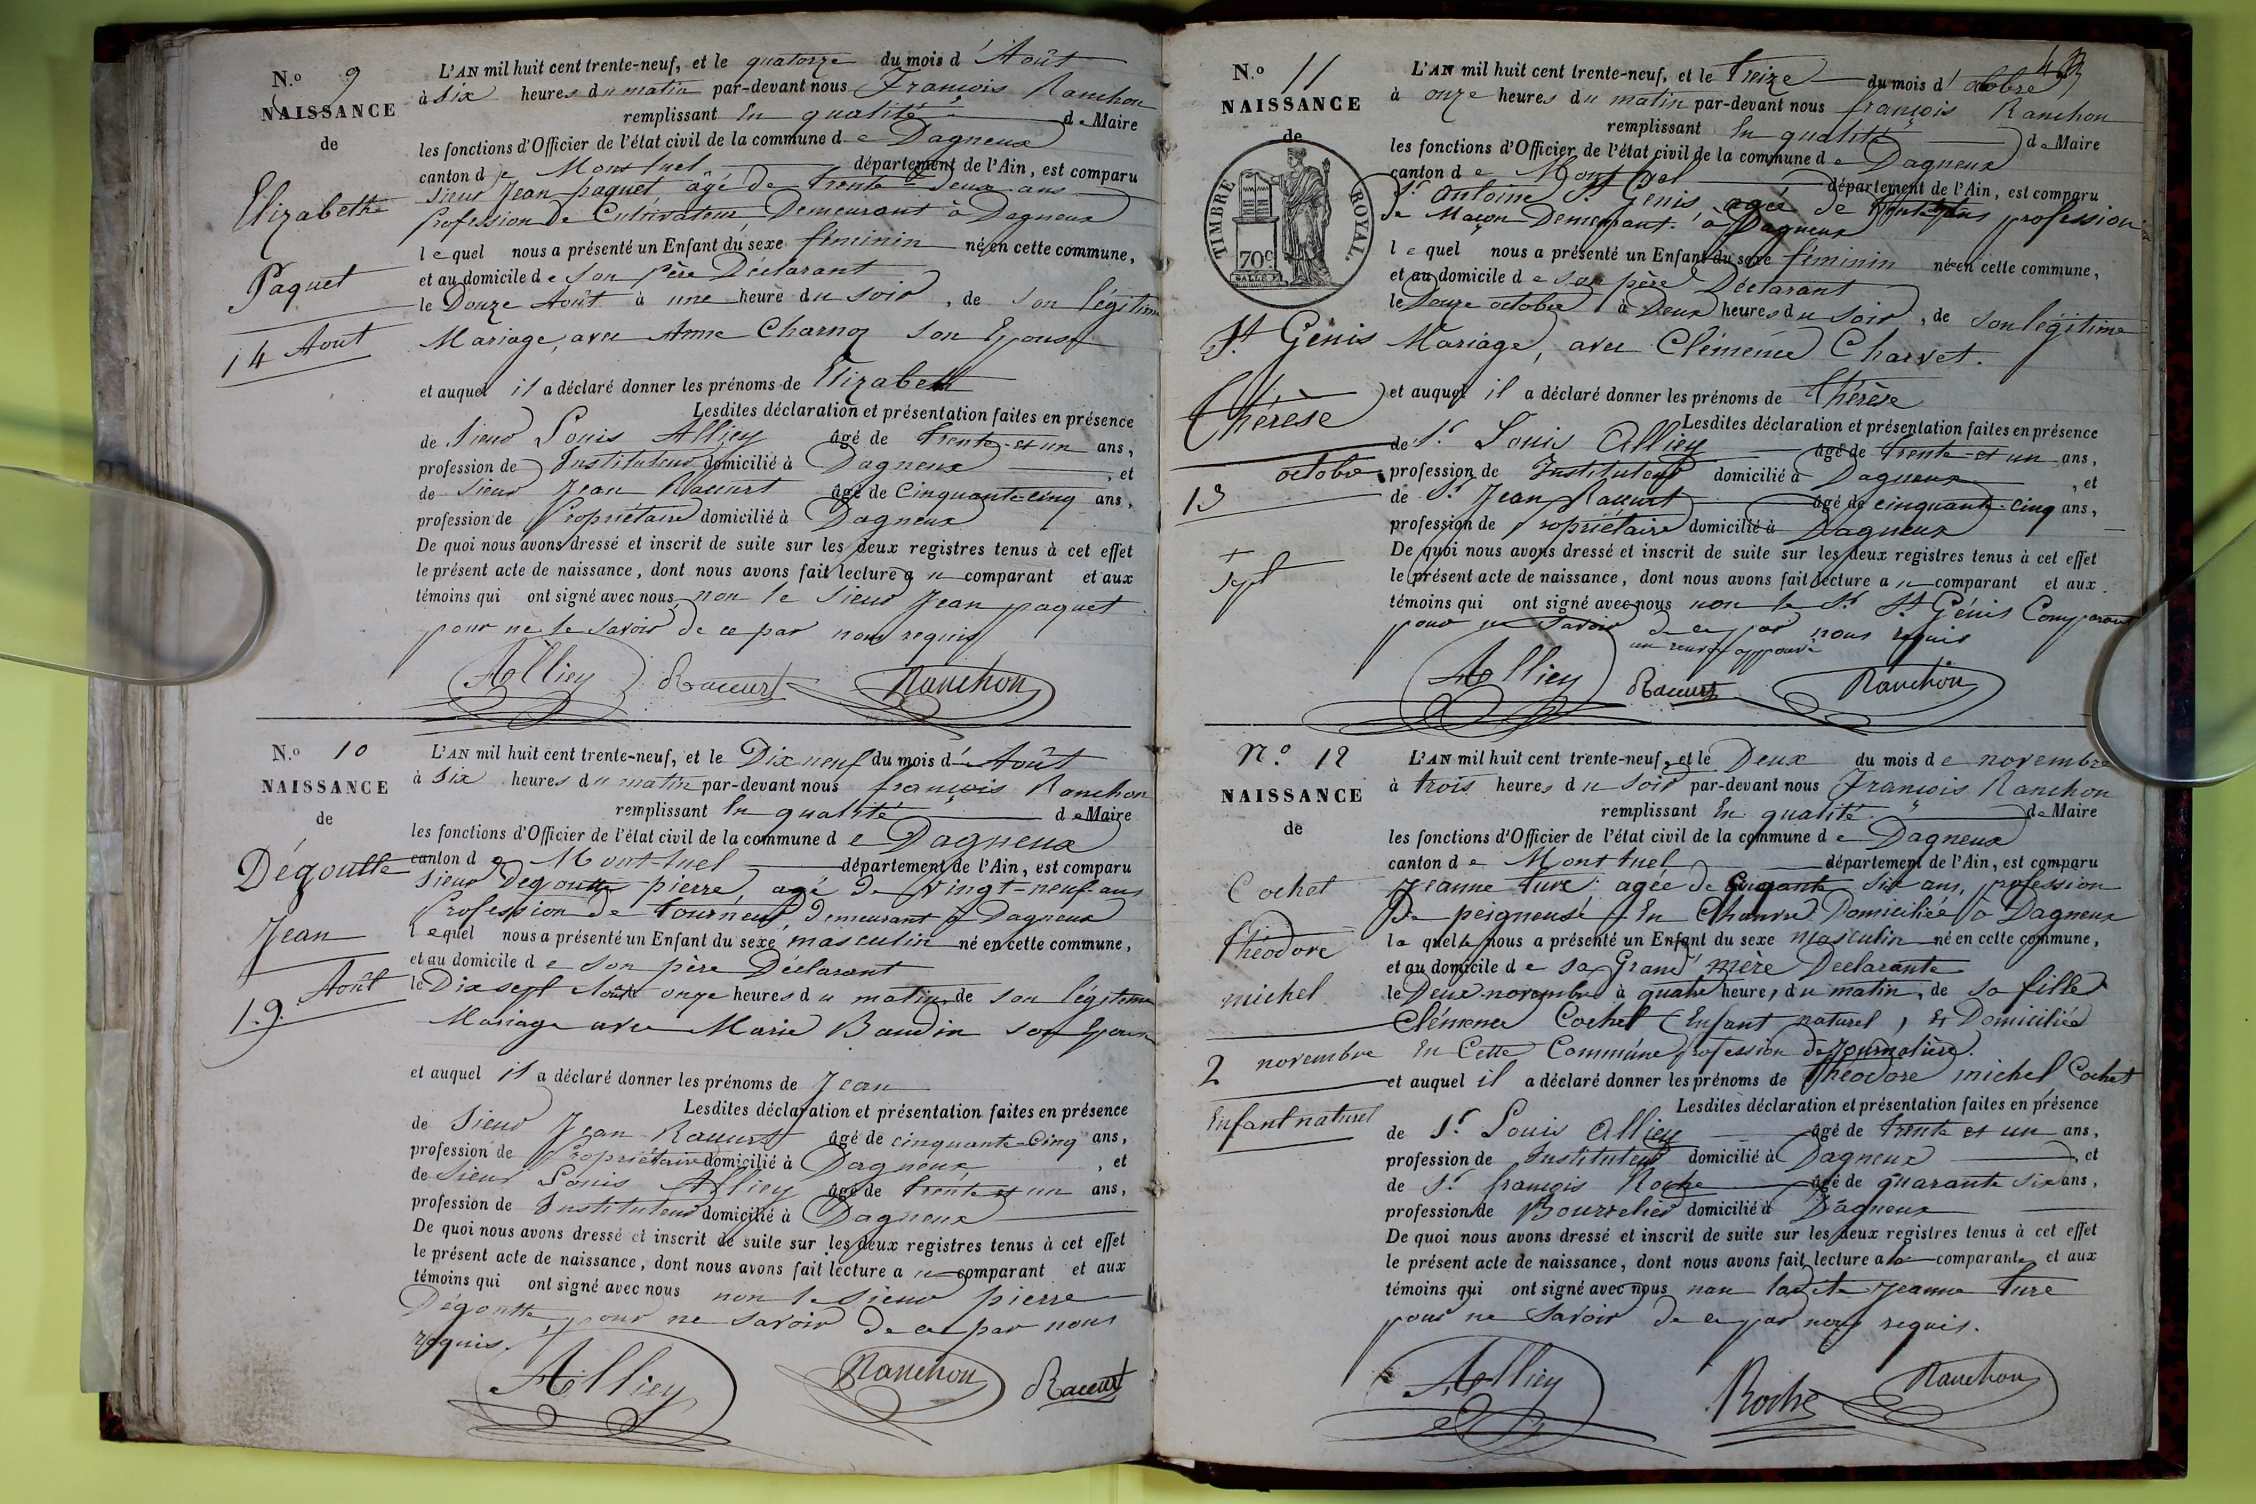 N.o 9
NAISSANCE
de
Elizabethe
Paquet
14 Août
L'AN mil huit cent trente-neuf, et le quatorze du mois d'Août
à six heures du matin par-devant nous François Ranchon
remplissant En qualité de Maire
les fonctions d'Officier de l'état civil de la commune de Dagneux
canton de Montluel département de l'Ain, est comparu
Sieur Jean paquet, âgé de trente deux ans
Profession de Cultivateur Demeurant à Dagneux
lequel nous a présenté un Enfant du sexe féminin né en cette commune,
et au domicile de son père Déclarant
le Douze Août à une heure du soir, de son légitime
Mariage, avec Anne Charnoz son Epouse
et auquel il a déclaré donner les prénoms de Elizabeth
Lesdites déclaration et présentation faites en présence
de Sieur Louis Alliey âgé de trente-et un ans,
profession de Instituteur domicilié à Dagneux, et
de sieur Jean Raccurt âgé de Cinquante-cinq ans,
profession de Propriétaire domicilié à Dagneux
De quoi nous avons dressé et inscrit de suite sur les deux registres tenus à cet effet
le présent acte de naissance, dont nous avons fait lecture au comparant et aux
témoins qui ont signé avec nous non le Sieur Jean paquet
pour ne le savoir de ce par nous requis
Alliey Raccurt Ranchon
N.o 10
NAISSANCE
de
Dégoutte
Jean
19 Août
L'AN mil huit cent trente-neuf, et le Dix neuf du mois d'Août
à six heures du matin par-devant nous françois Ranchon
remplissant En qualité de Maire
les fonctions d'Officier de l'état civil de la commune de Dagneux
canton de Mont-luel département de l'Ain, est comparu
Sieur Degoutte pierre, agé de vingt-neuf ans
Profession de tourneur, demeurant à Dagneux
lequel nous a présenté un Enfant du sexe masculin né en cette commune,
et au domicile de son père Déclarant
le Dix sept Août à onze heures du matin, de son légitime
Mariage avec Marie Baudin son Epouse
et auquel il a déclaré donner les prénoms de Jean
Lesdites déclaration et présentation faites en présence
de Sieur Jean Raccurt âgé de cinquante-cinq ans,
profession de Propriétaire domicilié à Dagneux, et
de Sieur Louis Alliey âgé de trente et un ans,
profession de Instituteur domicilié à Dagneux
De quoi nous avons dressé et inscrit de suite sur les deux registres tenus à cet effet
le présent acte de naissance, dont nous avons fait lecture au comparant et aux
témoins qui ont signé avec nous non le sieur pierre
Dégoutte, pour ne savoir de ce par nous
requis.
Alliey Ranchon Raccurt
N.o 11
NAISSANCE
de
TIMBRE ROYAL
70c
St Génis
Thérèse
13 octobre
L'AN mil huit cent trente-neuf, et le treize du mois d'octobre
à onze heures du matin par-devant nous françois Ranchon
remplissant En qualité de Maire
les fonctions d'Officier de l'état civil de la commune de Dagneux
canton de Montluel département de l'Ain, est comparu
Sr antoine St Genis, agé de profession
de Maçon Demeurant à Dagneux
lequel nous a présenté un Enfant du sexe féminin né en cette commune,
et au domicile de son père Déclarant
le Douze octobre à Deux heures du soir, de son légitime
Mariage, avec Clémence Charvet.
et auquel il a déclaré donner les prénoms de Thérèse
Lesdites déclaration et présentation faites en présence
de Sr Louis Alliey âgé de trente-et un ans,
profession de Instituteur domicilié à Dagneux, et
de Sr Jean Raccurt âgé de cinquante-cinq ans,
profession de Propriétaire domicilié à Dagneux
De quoi nous avons dressé et inscrit de suite sur les deux registres tenus à cet effet
le présent acte de naissance, dont nous avons fait lecture au comparant et aux
témoins qui ont signé avec nous non le Sr St Génis Comparant
pour ne savoir de ce par nous requis
Alliey Raccurt Ranchon
N.o 12
NAISSANCE
de
Cochet
Théodore
michel
2 novembre
Enfant naturel
L'AN mil huit cent trente-neuf, et le Deux du mois de novembre
à trois heures du soir par-devant nous François Ranchon
remplissant En qualité de Maire
les fonctions d'Officier de l'état civil de la commune de Dagneux
canton de Montluel département de l'Ain, est comparu
Jeanne ture agée de six ans, profession
De peigneuse En Chanvre Domiciliée à Dagneux
laquelle nous a présenté un Enfant du sexe masculin né en cette commune,
et au domicile de sa Grand mère Declarante
le Deux novembre à quatre heures du matin, de sa fille
Clémence Cochet Enfant naturel, Et Domiciliée
En Cette Commune profession de Journalière.
et auquel il a déclaré donner les prénoms de Théodore michel Cochet
Lesdites déclaration et présentation faites en présence
de Sr Louis Alliey âgé de trente et un ans,
profession de Instituteur domicilié à Dagneux, et
de Sr françois Roche âgé de quarante six ans,
profession de Bourrelier domicilié à Dagneux
De quoi nous avons dressé et inscrit de suite sur les deux registres tenus à cet effet
le présent acte de naissance, dont nous avons fait lecture a la comparante et aux
témoins qui ont signé avec nous non ladite Jeanne ture
pour ne savoir de ce par nous requis.
Alliey Roche Ranchon